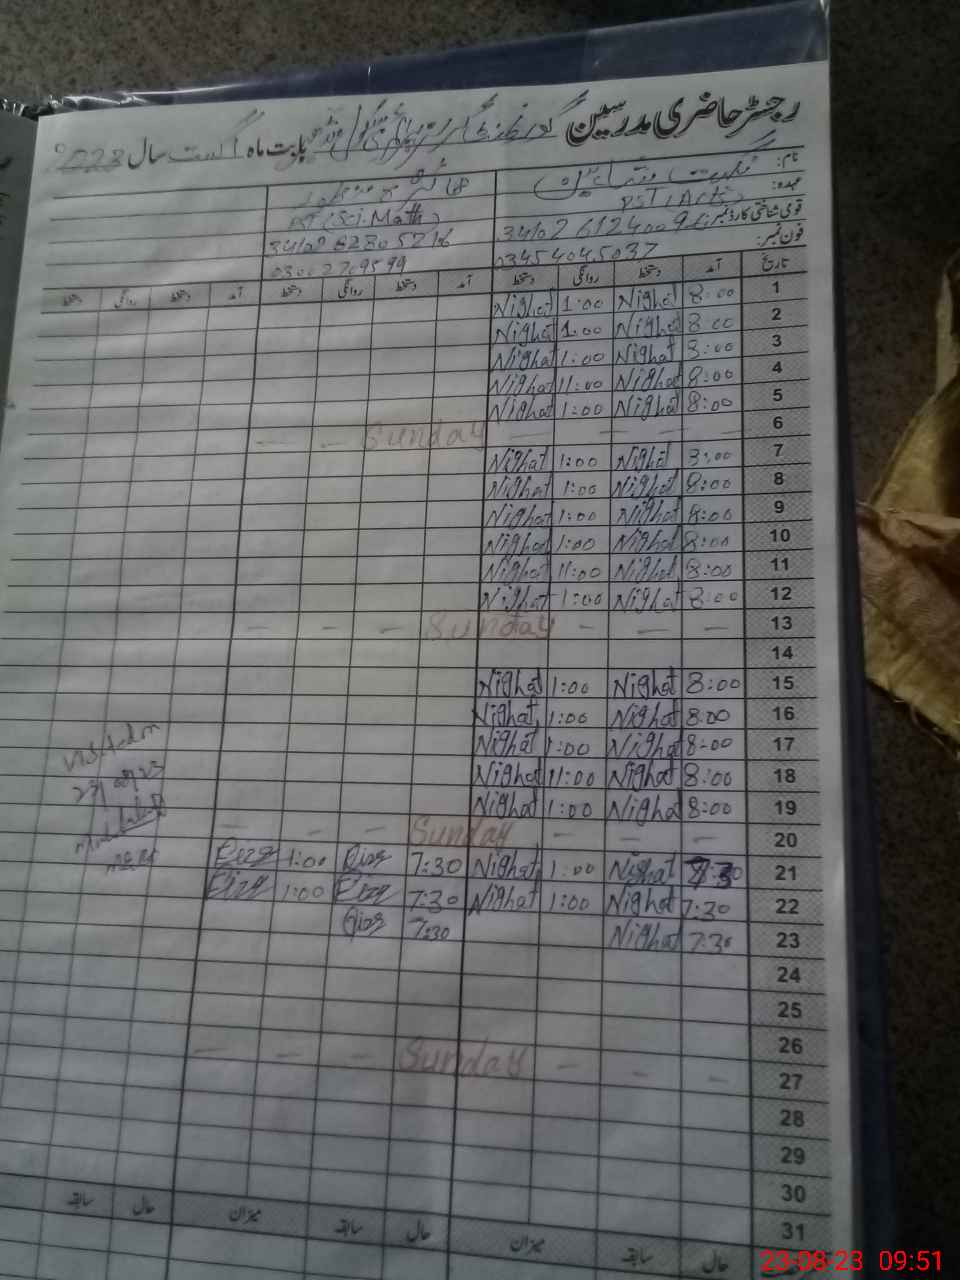 رجسٹر حاضری مدرسین گورنمنٹ گرلز بابت ماہ اگست سال 2023
نام: نگہت
عہدہ: PST (Arts) PST (Sci. Math)
قومی شناختی کارڈ نمبر:
فون نمبر: 03454045037 03002709599
تاریخ آمد دستخط روانگی دستخط آمد دستخط روانگی دستخط آمد دستخط روانگی دستخط
1 8:00 Nighat 1:00 Nighat
2 8:00 Nighat 1:00 Nighat
3 8:00 Nighat 1:00 Nighat
4 8:00 Nighat 11:00 Nighat
5 8:00 Nighat 1:00 Nighat
6 Sunday
7 8:00 Nighat 1:00 Nighat
8 8:00 Nighat 1:00 Nighat
9 8:00 Nighat 1:00 Nighat
10 8:00 Nighat 1:00 Nighat
11 8:00 Nighat 11:00 Nighat
12 8:00 Nighat 1:00 Nighat
13 Sunday
14
15 8:00 Nighat 1:00 Nighat
16 8:00 Nighat 1:00 Nighat
17 8:00 Nighat 1:00 Nighat
18 8:00 Nighat 11:00 Nighat
19 8:00 Nighat 1:00 Nighat
20 Sunday
21 7:30 Nighat 1:00 Nighat 7:30 1:00
22 7:30 Nighat 1:00 Nighat 7:30 1:00
23 7:30 Nighat 7:30
24
25
26
27 Sunday
28
29
30
31
حال سابقہ میزان حال سابقہ میزان حال سابقہ
23-08-23 09:51